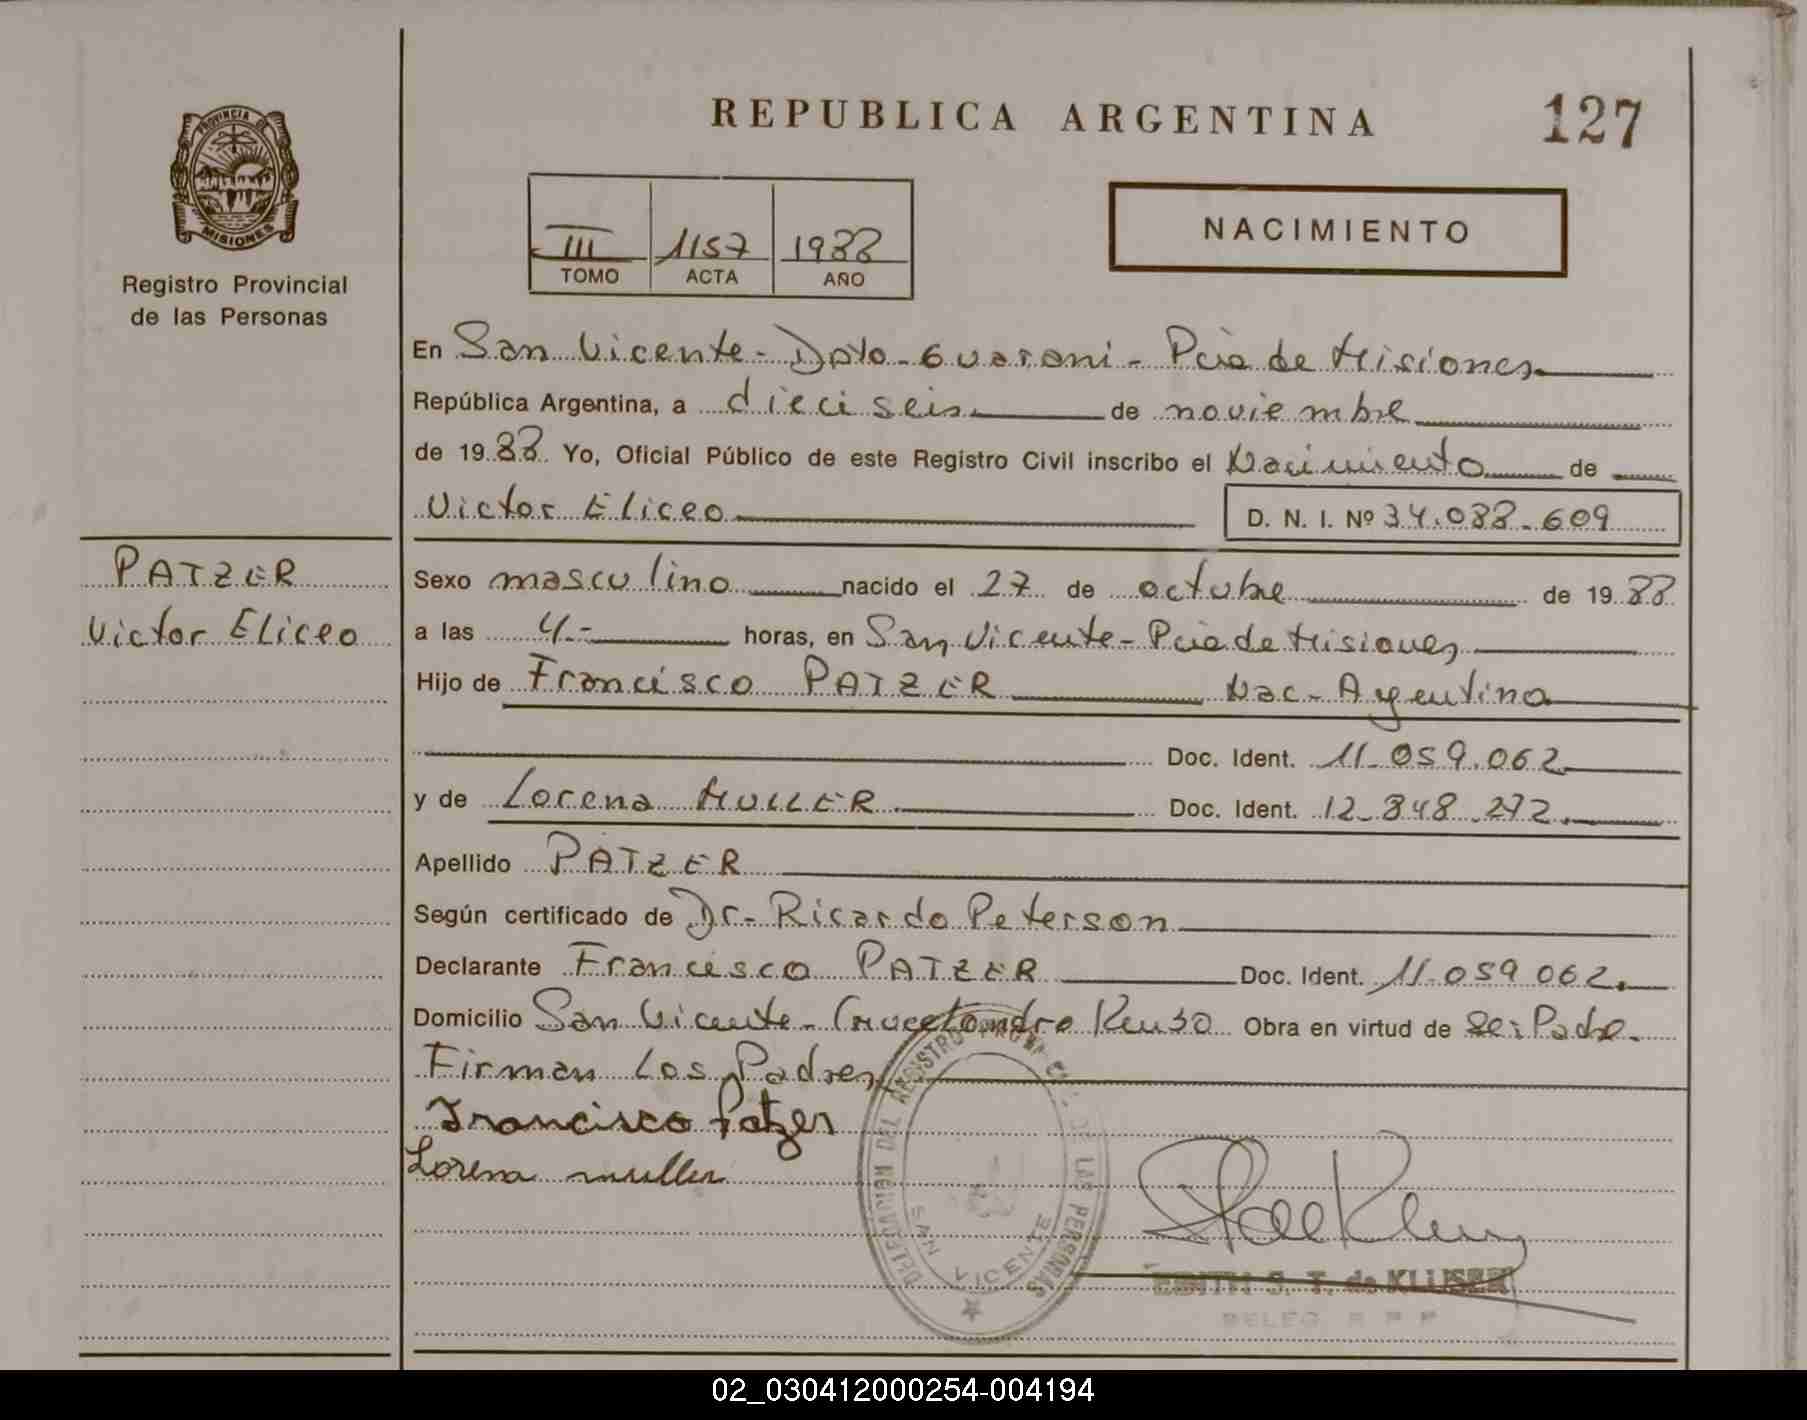 PROVINCIA DE
MISIONES
Registro Provincial
de las Personas
REPUBLICA ARGENTINA
127
III 1157 1988
TOMO ACTA AÑO
NACIMIENTO
En San Vicente - Dpto - Guarani - Pcia de Misiones
República Argentina, a dieciseis de noviembre
de 1988 Yo, Oficial Público de este Registro Civil inscribo el Nacimiento de
Victor Eliceo D. N. I. Nº 34.088.609
PATZER
Victor Eliceo
Sexo masculino nacido el 27 de octubre de 1988
a las 4.- horas, en San Vicente - Pcia de Misiones
Hijo de Francisco PATZER Nac - Argentina
Doc. Ident. 11.059.062
y de Lorena MULLER Doc. Ident. 12.848.272.
Apellido PATZER
Según certificado de Dr - Ricardo Peterson
Declarante Francisco PATZER Doc. Ident. 11.059.062.
Domicilio San Vicente - Obra en virtud de Padre.
Firman Los Padres
Francisco Patzer
Lorena muller
DELEGACION DEL REGISTRO PROVINCIAL DE LAS PERSONAS
SAN VICENTE
EDITH S. T. de KLUSER
DELEG. R P P
02_030412000254-004194